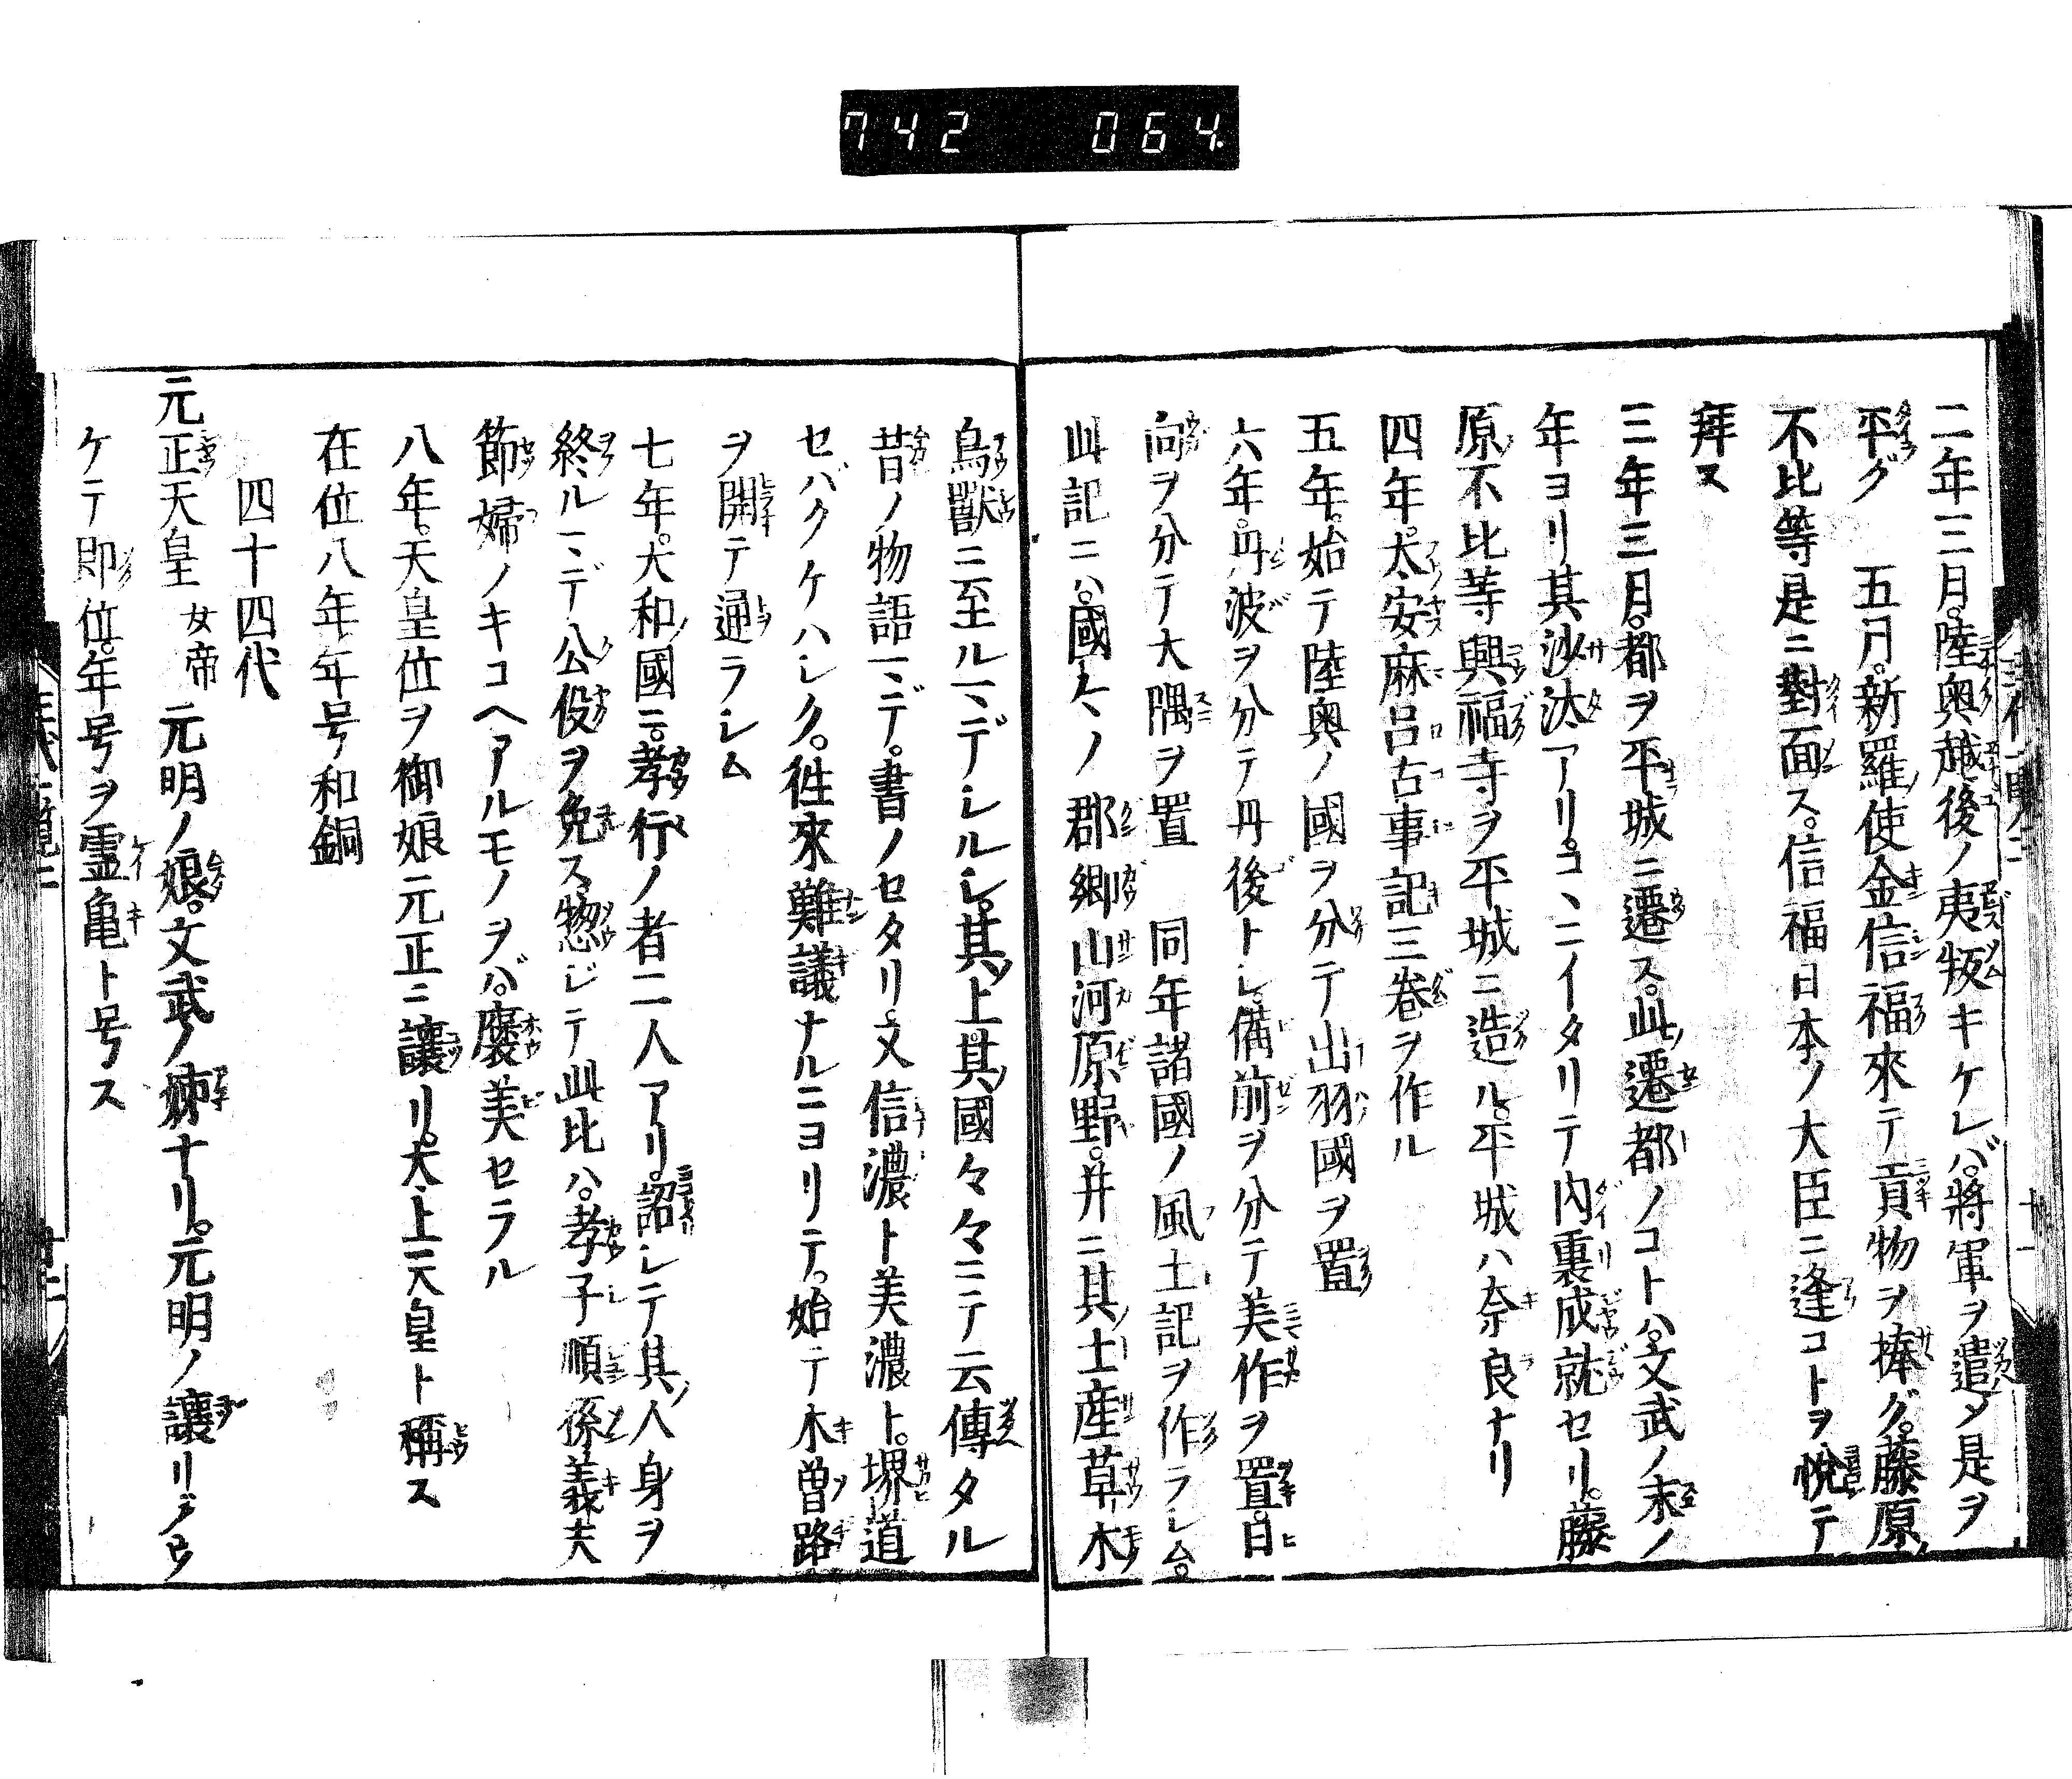 742 064.
二年三月。陸奥越後ノ夷叛キケレバ。將軍ヲ遣メ是ヲ
平グ 五月。新羅使金信福來テ貢物ヲ捧グ。藤原
不比等是ニ對面ス。信福日本ノ大臣ニ逢コトヲ悦テ
拜ス
三年三月。都ヲ平城ニ遷ス。此遷都ノコトハ。文武ノ末ノ
年ヨリ其沙汰アリ。コヽニイタリテ内裏成就セリ。藤
原不比等興福寺ヲ平城ニ造ル。平城ハ奈良ナリ
四年。太安麻呂古事記三巻ヲ作ル
五年。始テ陸奥ノ國ヲ分テ出羽國ヲ置
六年。丹波ヲ分テ丹後トシ。備前ヲ分テ美作ヲ置。日
向ヲ分テ大隅ヲ置 同年諸國ノ風土記ヲ作ラシム。
此記ニハ。國々ノ郡郷山河原野。并ニ其土産草木
鳥獸ニ至ルマデシルシ。其上其國々々ニテ云傳タル
昔ノ物語マデ。書ノセタリ。又信濃ト美濃ト。堺道
セバクケハシク。徃來難議ナルニヨリテ。始テ木曽路
ヲ開テ通ラシム
七年。大和國ニ。孝行ノ者二人アリ。詔シテ其人身ヲ
終ルマデ公役ヲ免ス。惣ジテ此比ハ。孝子順孫義夫
節婦ノキコヘアルモノヲバ。褒美セラル
八年。天皇位ヲ御娘元正ニ讓リ。太上天皇ト稱ス
在位八年年号和銅
四十四代
元正天皇 女帝 元明ノ娘。文武ノ姉ナリ。元明ノ讓リヲウ
ケテ即位。年号ヲ霊亀ト号ス